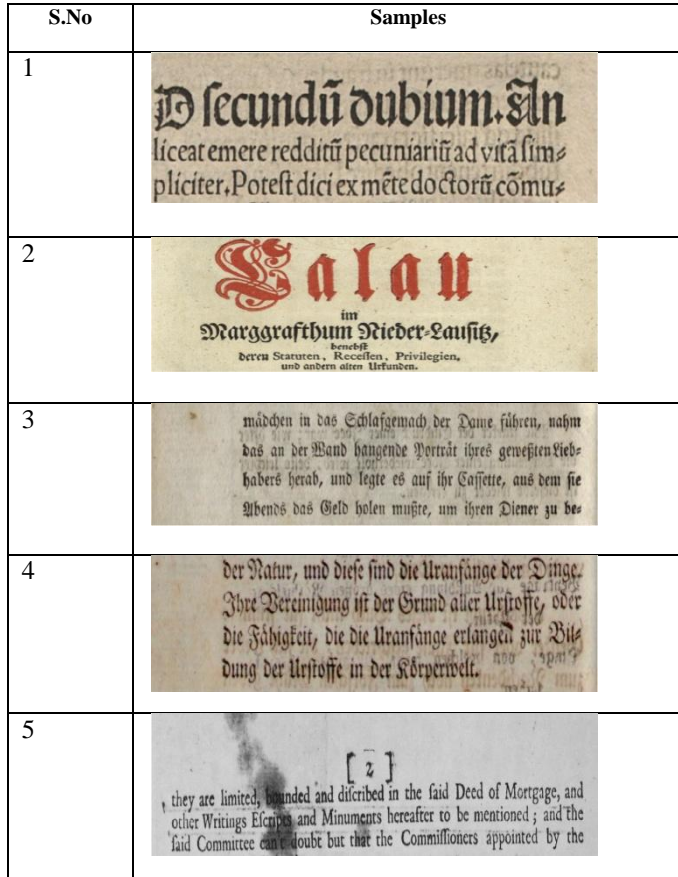 S.No Samples
1
D ſecundū dubium. An
liceat emere redditū pecuniariū ad vitā ſim⸗
pliciter. Poteſt dici ex mēte doctorū cōmu⸗
2
Calau
im
Marggrafthum Nieder-Lauſitz,
benebſt
deren Statuten, Receſſen, Privilegien,
und andern alten Urkunden.
3
mädchen in das Schlafgemach der Dame führen, nahm
das an der Wand hangende Porträt ihres geweßten Lieb⸗
habers herab, und legte es auf ihr Caſſette, aus dem ſie
Abends das Geld holen mußte, um ihren Diener zu be⸗
4
der Natur, und dieſe ſind die Uranfänge der Dinge.
Ihre Vereinigung iſt der Grund aller Urſtoffe, oder
die Fähigkeit, die die Uranfänge erlangen zur Bil⸗
dung der Urſtoffe in der Körperwelt.
5
[ 2 ]
they are limited, bounded and diſcribed in the ſaid Deed of Mortgage, and
other Writings Eſcripts and Minuments hereafter to be mentioned ; and the
ſaid Committee can't doubt but that the Commiſſioners appointed by the